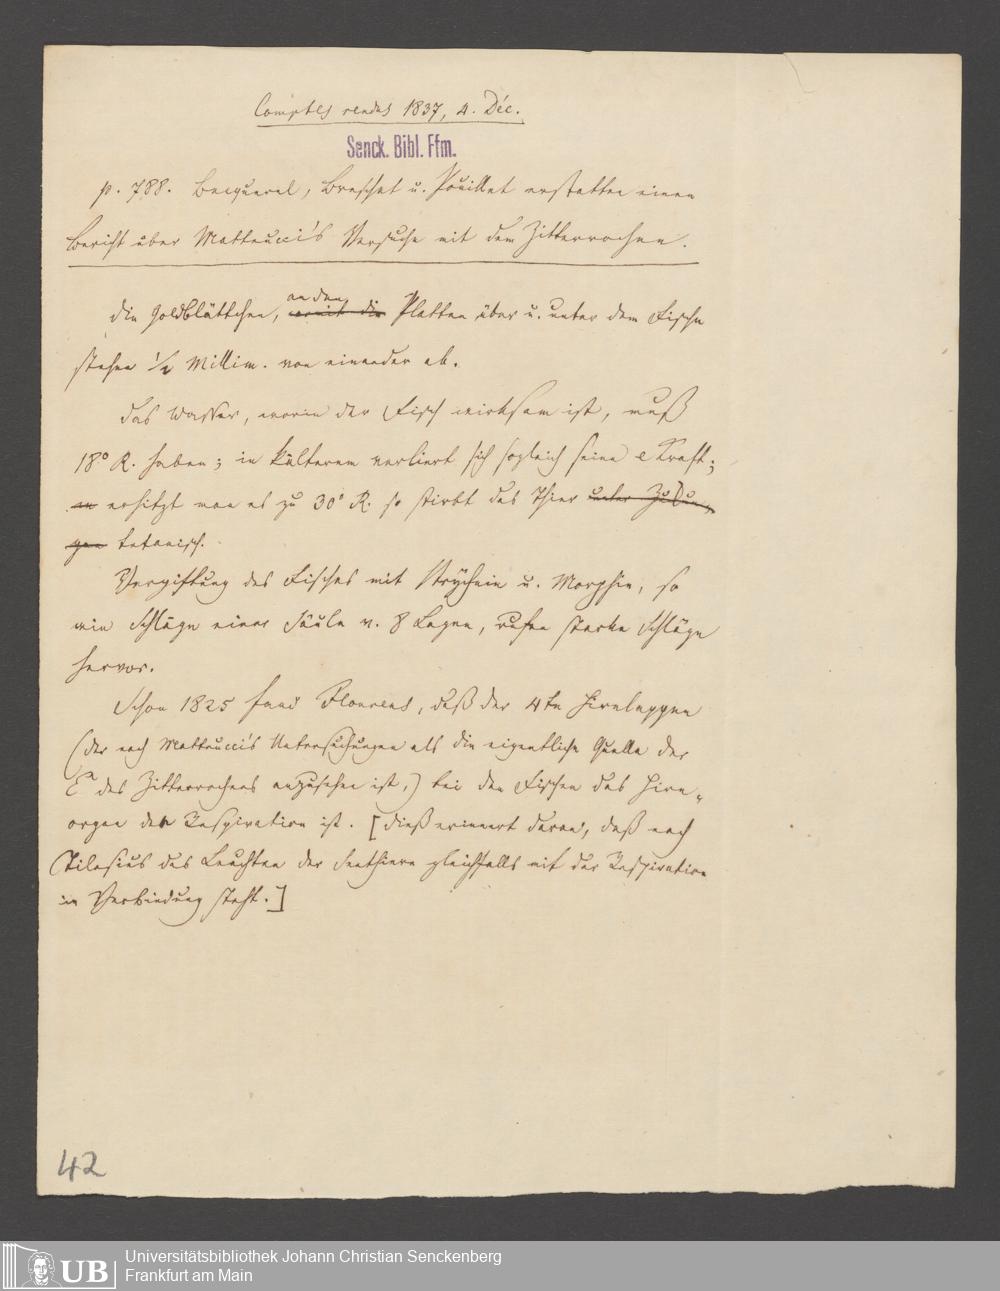 Comptes rendus 1837, 4. Déc.
Senck. Bibl. Ffm.
p. 788. Becquerel, Breschet u. Pouillet erstatten einen
Bericht über Matteucci's Versuche mit dem Zitterrochen.
Die Goldblättchen, an den womit die Platten über u. unter dem Fische
stehen 1/2 Millim. von einander ab.
Das Wasser, worin der Fisch wirksam ist, muß
18° R. haben; in kälterem verliert sich sogleich seine e Kraft;
erhitzt man es zu 30° R. so stirbt das Thier unter
tetanisch.
Vergiftung des Fisches mit Strychnin u. Morphin, so
wie Schläge einer Säule v. 8 Lagen, rufen starke Schläge
hervor.
Schon 1825 fand Flourens, daß der 4te Hirnlappen
(der nach Matteucci's Untersuchungen als die eigentliche Quelle der
E des Zitterrochens anzusehen ist,) bei den Fischen das Hirn-
organ der Respiration ist. [Dieß erinnert daran, daß nach
Tilesius das Leuchten der Seethiere gleichfalls mit der Respiration
in Verbindung steht.]
42
UB
Universitätsbibliothek Johann Christian Senckenberg
Frankfurt am Main